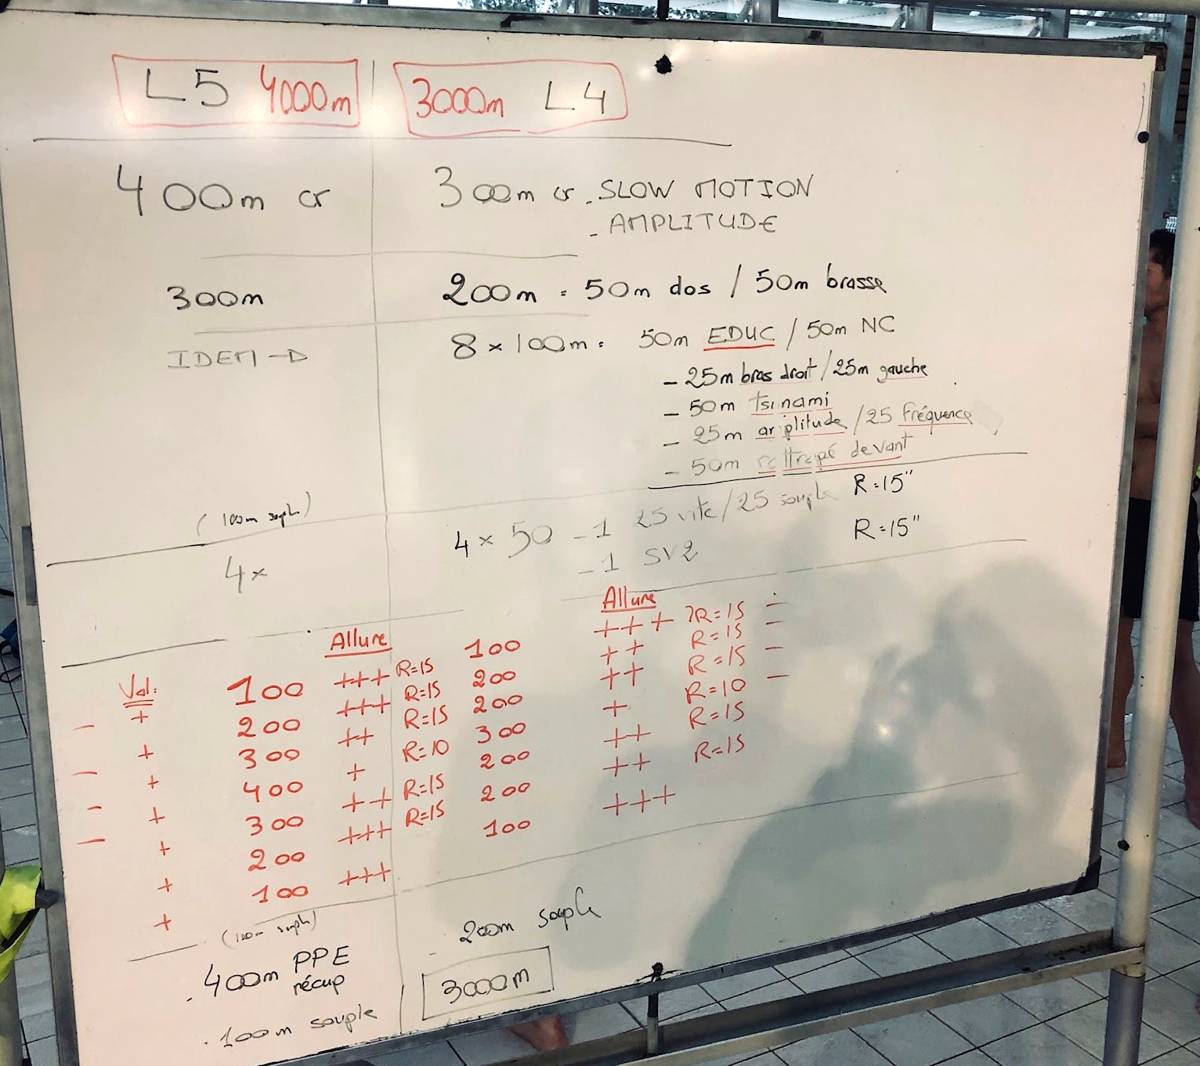 L5 4000m 3000m L4
400m cr 300m cr - SLOW MOTION
- AMPLITUDE
300m 200m = 50m dos / 50m brasse
IDEM → 8 × 100m = 50m EDUC / 50m NC
- 25m bras droit / 25m gauche
- 50m tsunami
- 25m amplitude / 25 fréquence
- 50m rattrapé devant
(100m souple) 4 × 50 - 1 25 vite / 25 souple R=15"
4 × - 1 SV2 R=15"
Allure Allure
Val.
100 +++ R=15 100 +++ R=15 -
- + 200 +++ R=15 200 ++ R=15 -
+ 300 ++ R=15 200 ++ R=15 -
- + 400 + R=10 300 + R=10 -
- + 300 ++ R=15 200 ++ R=15
- + 200 +++ R=15 200 ++ R=15
+ 100 +++ 100 +++
+
(100m souple) 200m souple
. 400m PPE
récup
3000m
. 100m souple